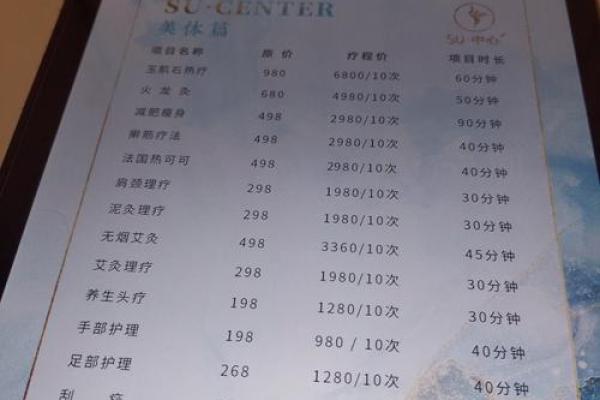 SU·CENTER
美体篇
SU·中心
项目名称 原价 疗程价 项目时长
玉肌石热疗 980 6800/10次 60分钟
火龙灸 680 4980/10次 50分钟
减肥瘦身 498 2980/10次 90分钟
擀筋疗法 498 2980/10次 40分钟
法国热可可 498 2980/10次 40分钟
肩颈理疗 298 1980/10次 30分钟
泥灸理疗 298 1980/10次 30分钟
无烟艾灸 498 3360/10次 45分钟
艾灸理疗 298 1980/10次 30分钟
养生头疗 198 1280/10次 30分钟
手部护理 198 980 / 10次 40分钟
足部护理 268 1280/10次 40分钟
刮 痧